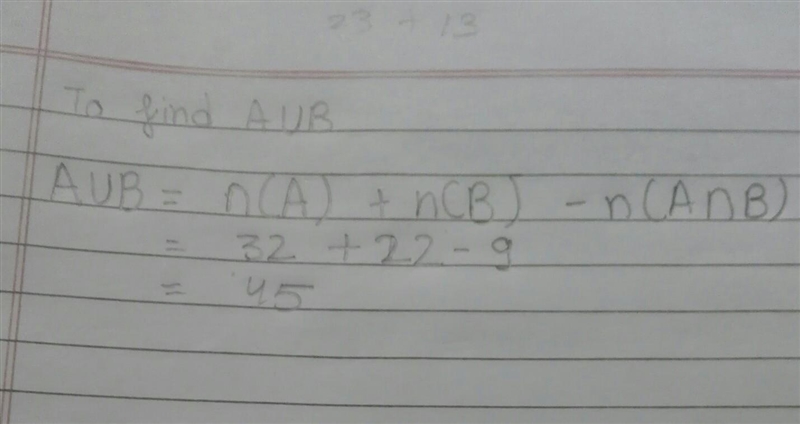 23 + 13
To find A∪B
A∪B = n(A) + n(B) - n(A∩B)
= 32 + 22 - 9
= 45